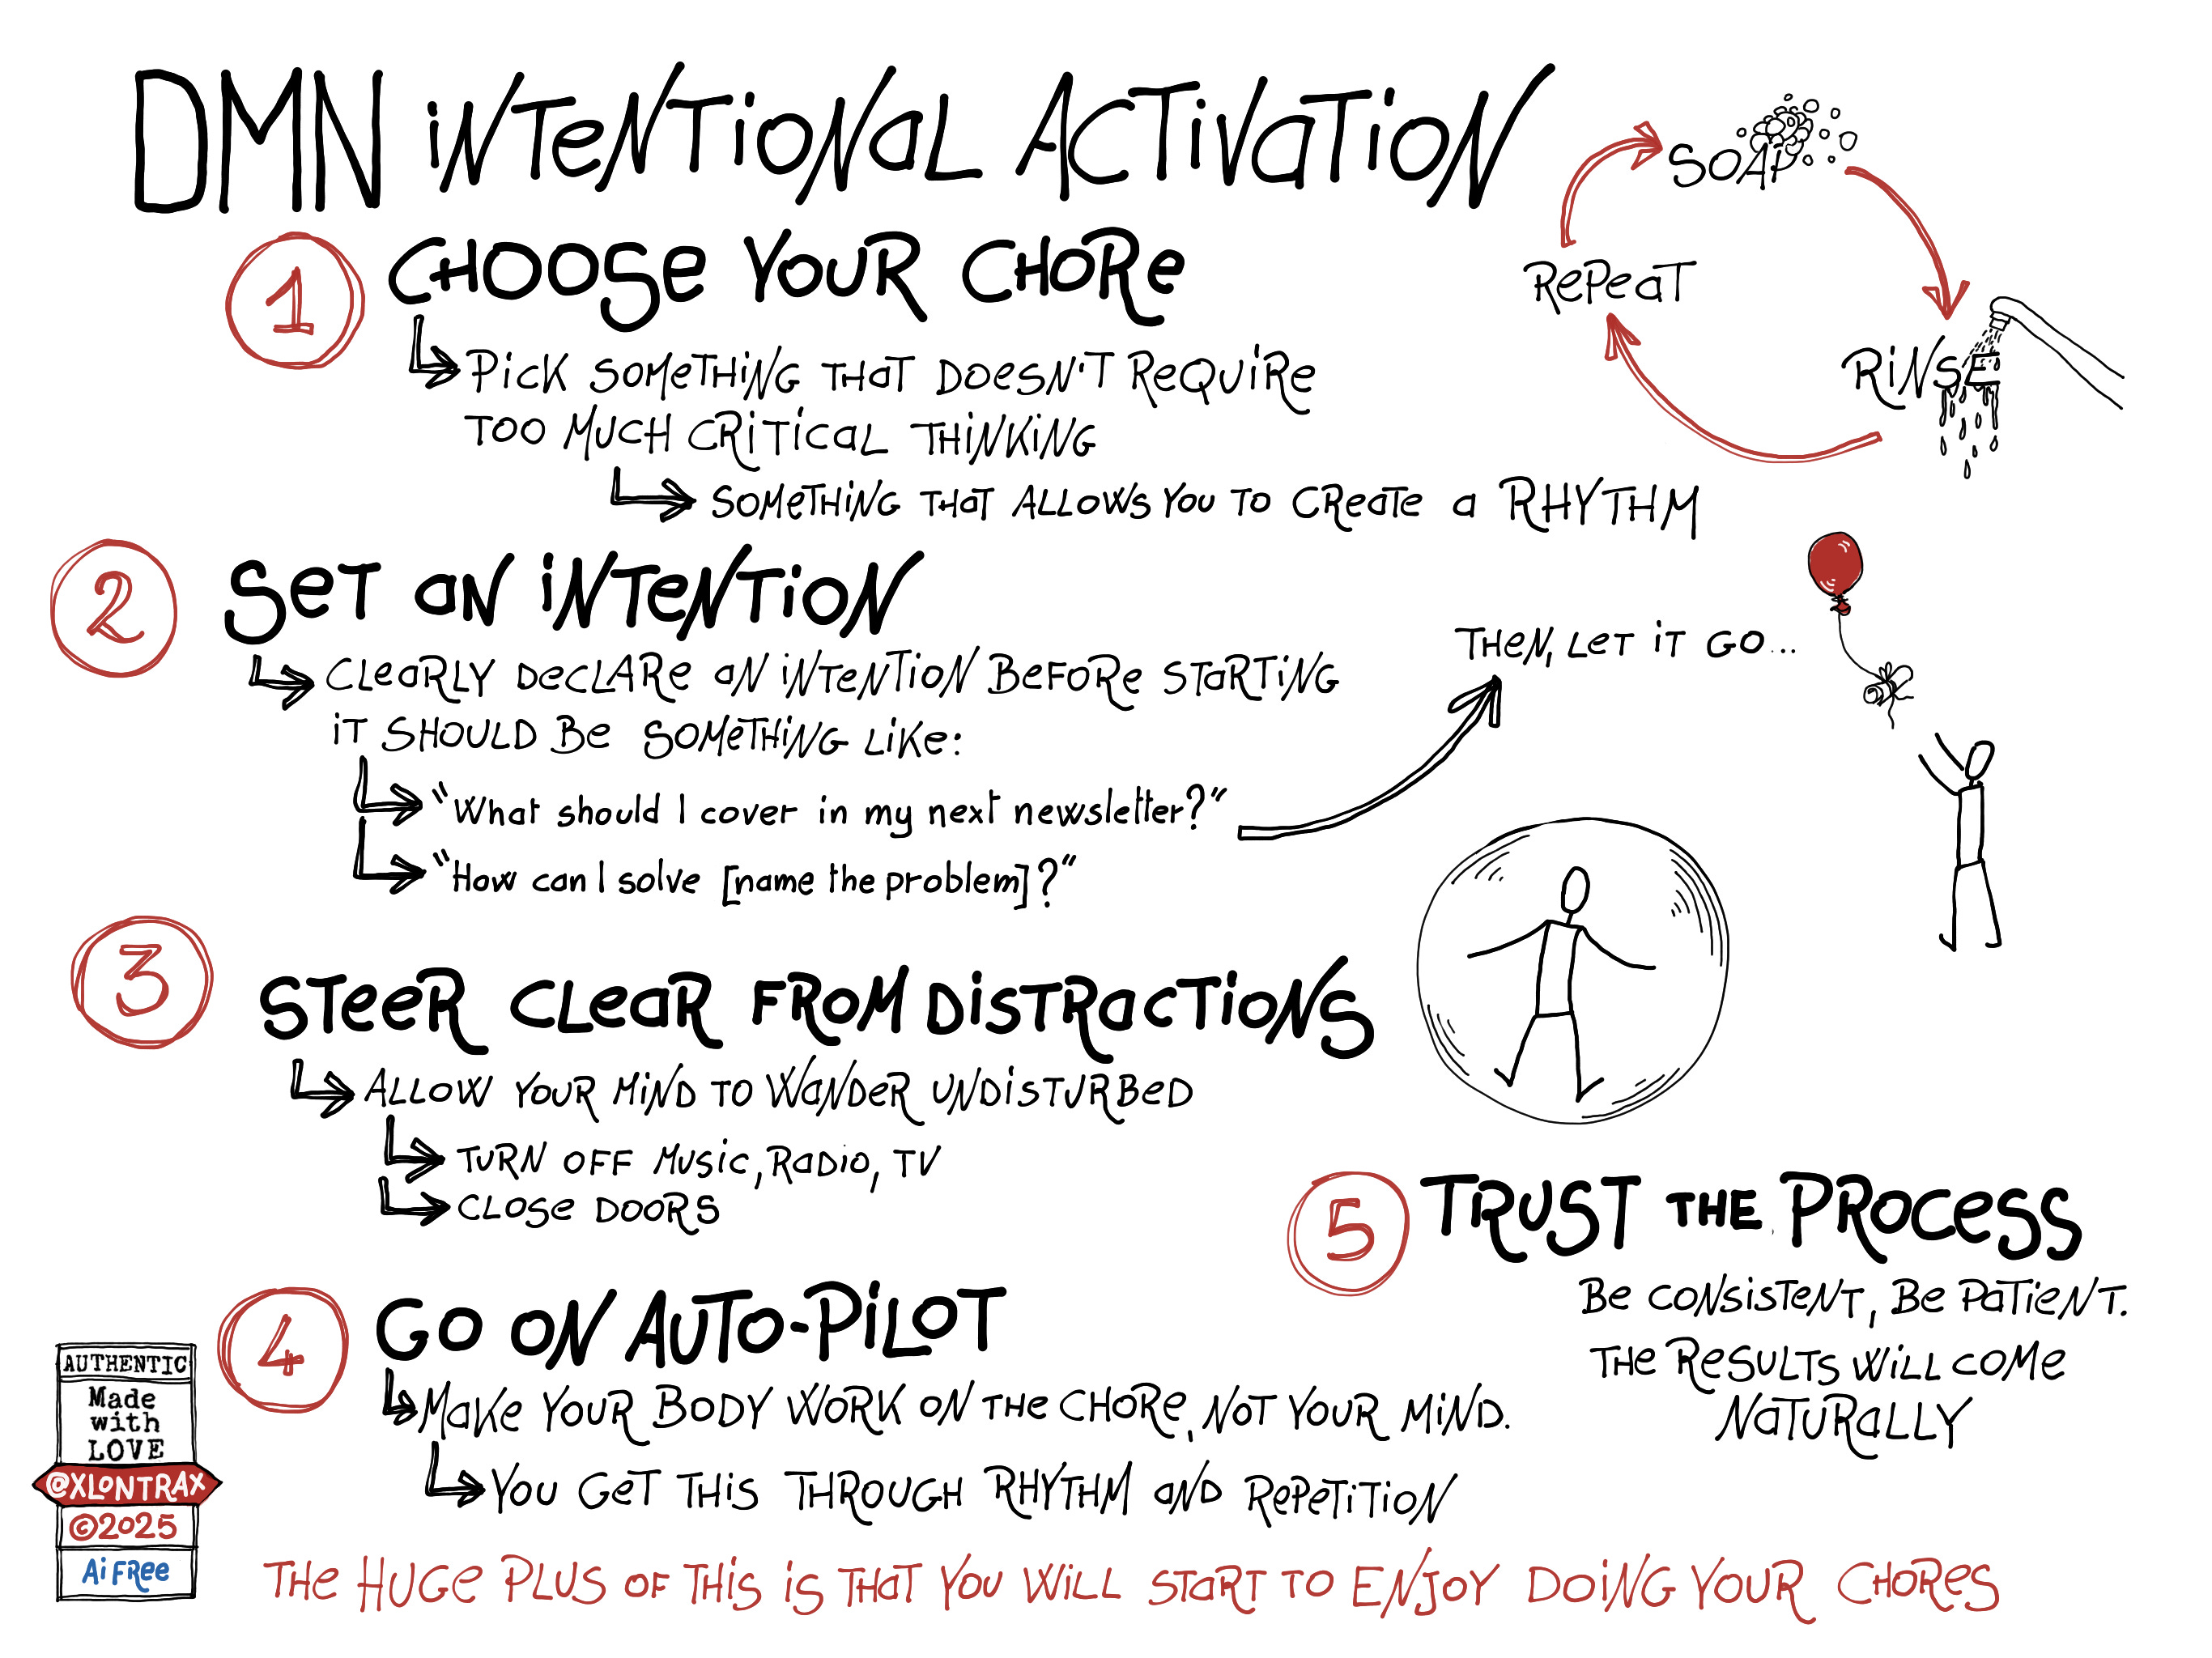 DMN INTENTIONAL ACTIVATION
1
CHOOSE YOUR CHORE
PICK SOMETHING THAT DOESN'T REQUIRE
TOO MUCH CRITICAL THINKING
SOMETHING THAT ALLOWS YOU TO CREATE A RHYTHM
SOAP
RINSE
REPEAT
2
SET AN INTENTION
CLEARLY DECLARE AN INTENTION BEFORE STARTING
IT SHOULD BE SOMETHING LIKE:
"What should I cover in my next newsletter?"
"How can I solve [name the problem]?"
THEN, LET IT GO...
3
STEER CLEAR FROM DISTRACTIONS
ALLOW YOUR MIND TO WANDER UNDISTURBED
TURN OFF MUSIC, RADIO, TV
CLOSE DOORS
4
GO ON AUTO-PILOT
MAKE YOUR BODY WORK ON THE CHORE, NOT YOUR MIND.
YOU GET THIS THROUGH RHYTHM AND REPETITION
5
TRUST THE PROCESS
BE CONSISTENT, BE PATIENT.
THE RESULTS WILL COME
NATURALLY
THE HUGE PLUS OF THIS IS THAT YOU WILL START TO ENJOY DOING YOUR CHORES
AUTHENTIC
Made
with
LOVE
@XLONTRAX
©2025
Ai FREE